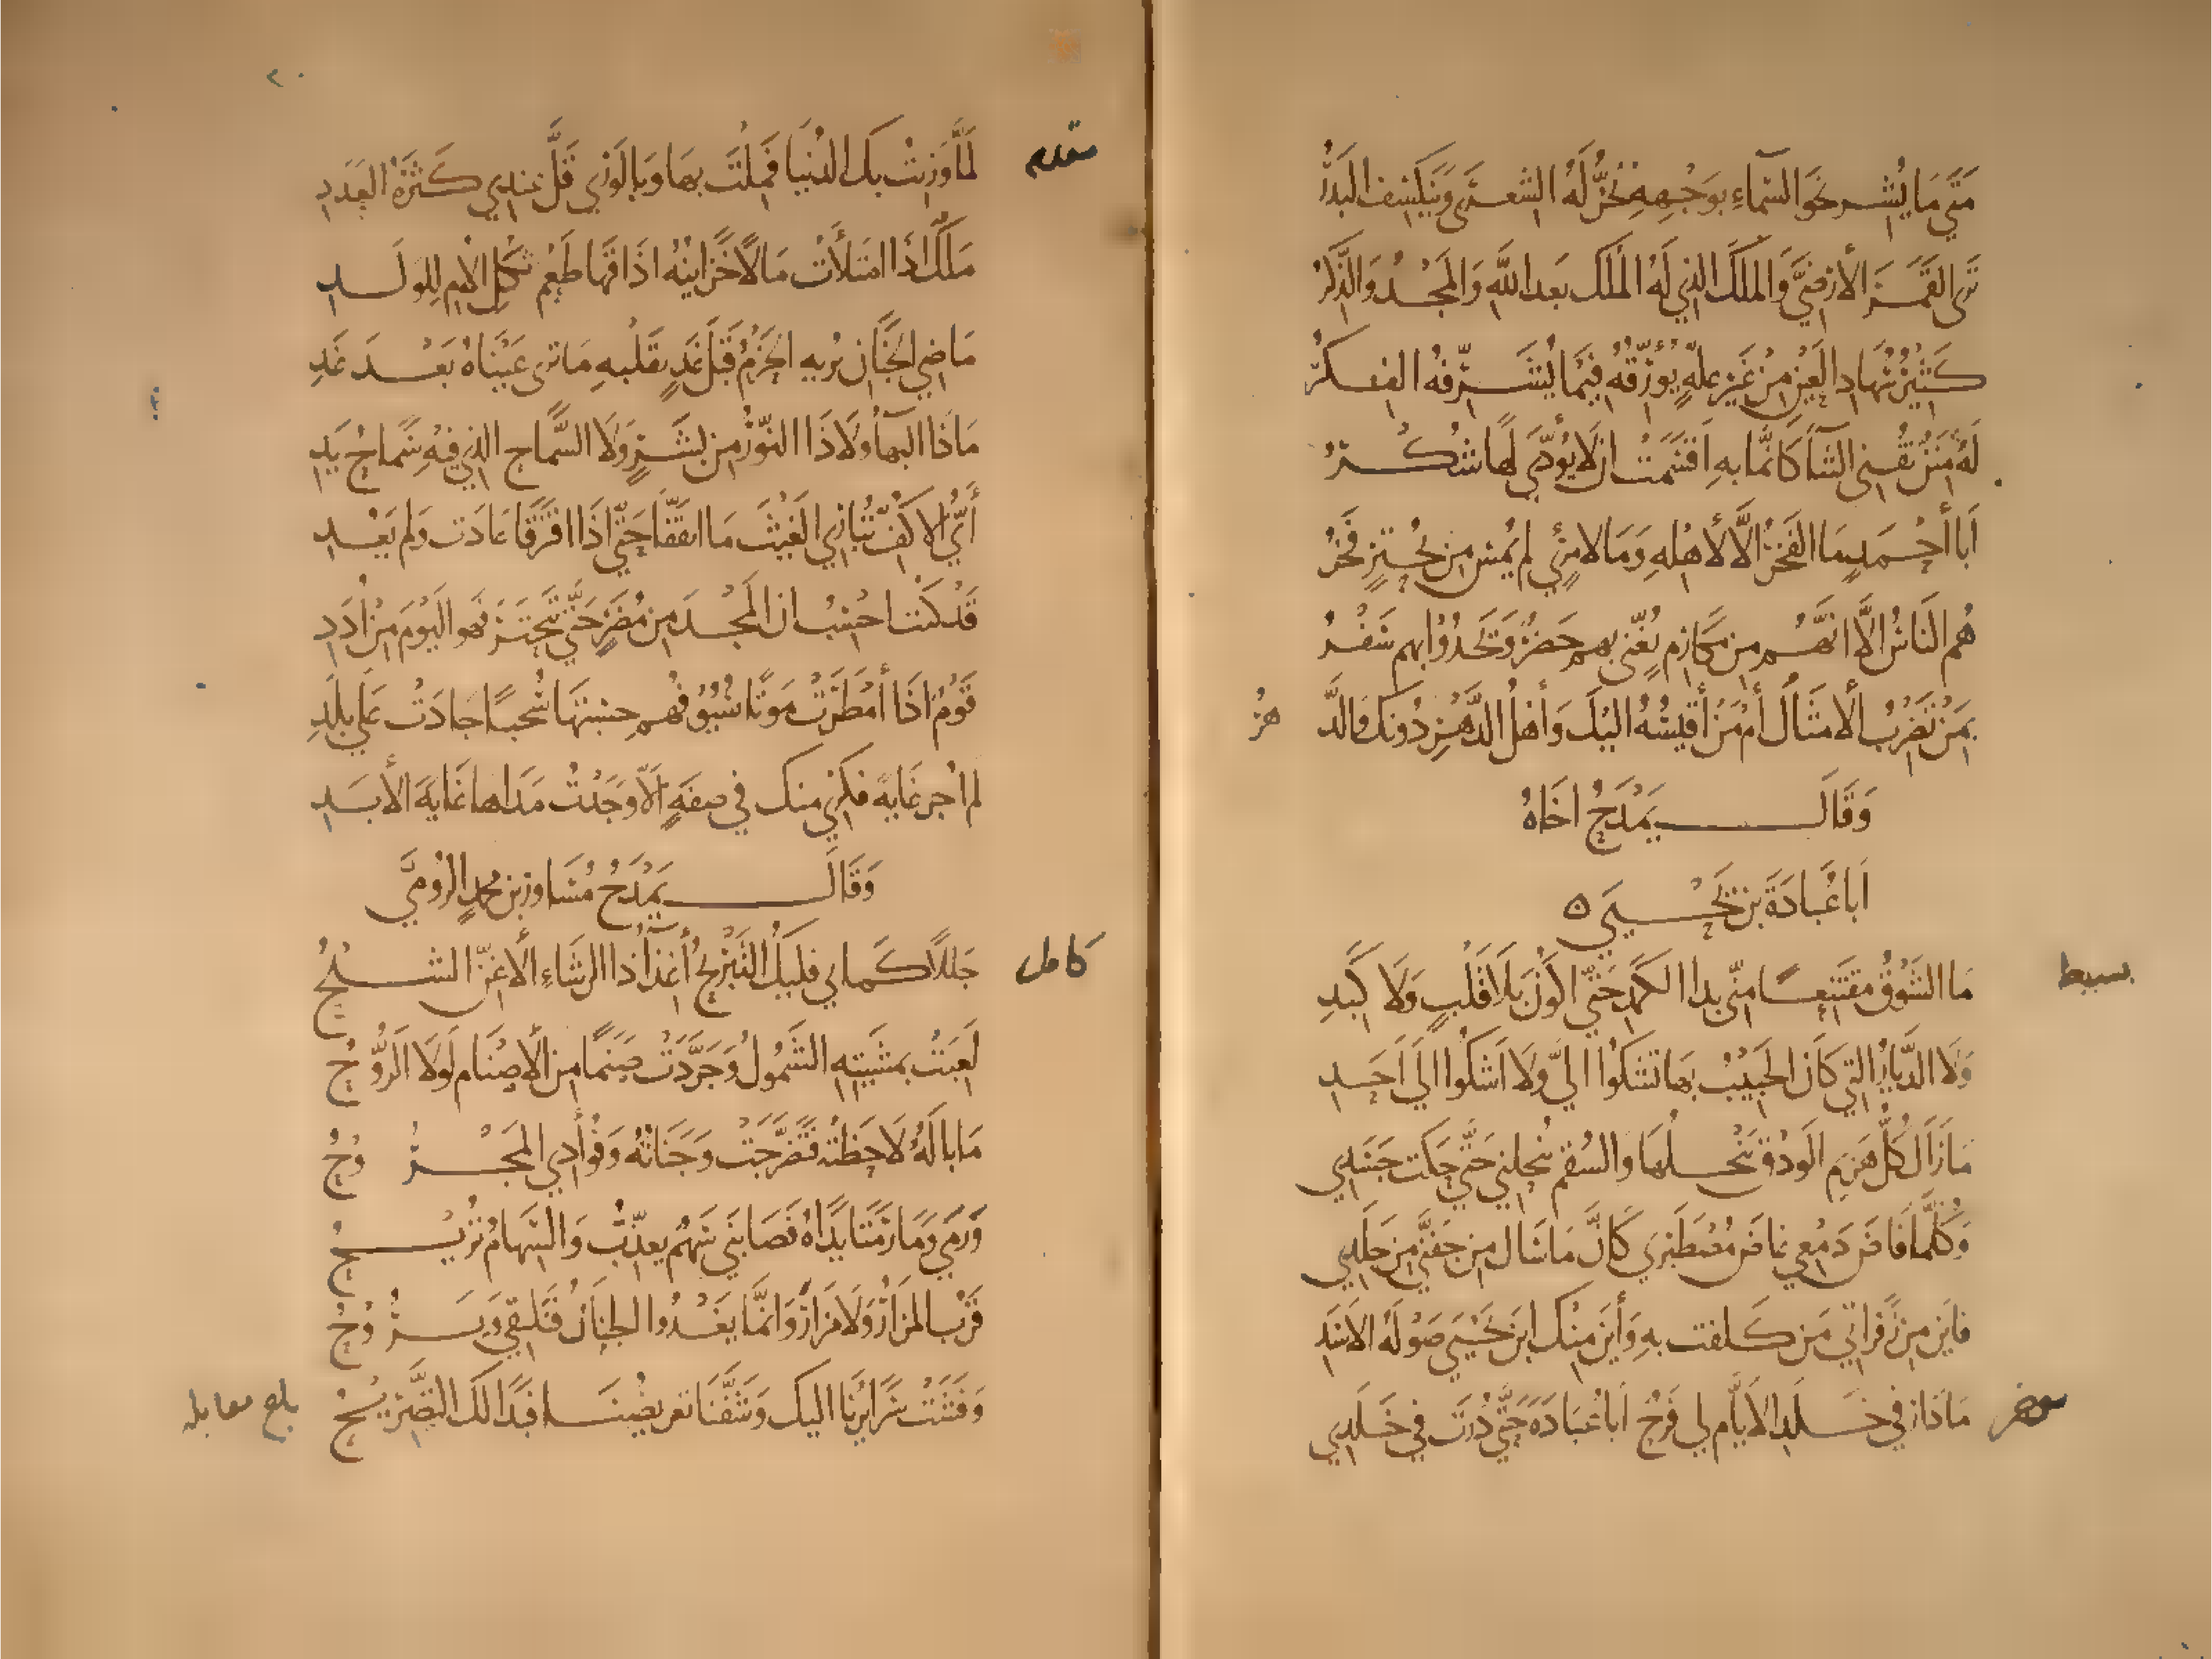 مَتَى مَا يُشِر نحوَ السَّمَاءِ بوَجْهِهِ تَخُرُّ لَهُ الشِّعْرَى وَيَنكَسِفُ البَدْرُ
تَرَى القَمَرَ الأَرْضِيَّ وَالمَلِكَ الذي لَهُ المُلْكُ بَعدَ اللَّهِ وَالمَجْدُ وَالذِّكْرُ
كَثِيرُ سُهَادِ العَيْنِ مِنْ غَيْرِ عِلَّةٍ يُؤَرِّقُهُ فِيمَا يُشَرِّفُهُ الفِكْرُ
لَهُ مِنَنٌ تُفْنِي الثَّنَآءَ كَأَنَّمَا بِهِ أَقْسَمَتْ ان لَا يُؤَدَّى لَهَا شُكْرُ
أَبَا أَحْمَدٍ مَا الفَخْرُ إلَّا لأَهْلِهِ وَمَا لامرِئٍ لم يُمْسِ مِن بُحْتُرٍ فَخْرُ
هُمُ النَّاسُ إلَّا أنَّهُم مِن مَكَارِمٍ يُغَنِّي بِهِم حَضْرٌ وَيَحْدُوا بِهِم سَفْرُ
بِمَنْ تُضْرَبُ الأَمثَالُ أَمْ مَنْ أَقِيسُهُ اليْكَ وَأَهْلُ الدَّهْرِ دُونَكَ وَالدَّهْرُ
وَقَالَ يَمْدَحُ اخَاهُ
أَبَا عُبَادَةَ بنَ يَحْيَى ٥
بسيط
مَا الشَّوْقُ مُقْتَنِعًا مِنِّي بِذَا الكَمَدِ حَتَّى اكُونَ بِلَا قَلْبٍ وَلَا كَبِدِ
وَلَا الدِّيَارُ التِي كَانَ الحَبِيبُ بِهَا تَشْكُوا الَيَّ وَلَا أَشْكُوا الَى أَحَدِ
مَا زَالَ كُلُّ هَزِيمِ الوَدْقِ يُنْحِلُهَا والسُّقْمُ يُنْحِلُنِي حَتَّى حَكَت جَسَدِي
وَكُلَّمَا فَاضَ دَمْعِي غَاضَ مُصْطَبَرِي كَأَنَّ مَا سَالَ مِن جَفْنَيَّ مِن جَلَدِي
فَأَيْنَ مِن زَفَرَاتِي مَن كَلِفْت بِهِ وَأَيْنَ مِنْكَ ابنَ يَحْيَى صَوْلَةُ الأَسَدِ
مَا دَارَ في خَلَدِ الأَيَّامِ لِي فَرَحٌ أَبَا عُبَادَةَ حَتَّى دُرْتَ في خَلَدِي
٢٠
مقدم
لَمَّا وَزَنْتُ بِكَ الدُّنْيَا فَمِلْتَ بِهَا وَبِالوَرَى قَلَّ عِنْدِي كَثْرَةُ العَدَدِ
مَلْكٌ اذَا امْتَلَأَتْ مَالًا خَزَائِنُهُ اذَاقَهَا طَعْمَ ثُكْلِ الأُمِّ لِلوَلَدِ
مَاضِي الجَنَانِ يُرِيهِ الحَزْمُ قَبْلَ غَدٍ بِقَلْبِهِ مَا تَرَى عَيْنَاهُ بَعْدَ غَدِ
مَا ذَا البَهَآءُ وَلَا ذَا النُّورُ مِن بَشَرٍ وَلَا السَّمَاحُ الذي فيهِ سَمَاحُ يَدِ
أَيُّ الأَكُفِّ تُبَارِي الغَيْثَ مَا اتَّفَقَا حَتَّى اذَا افْتَرَقَا عَادَت وَلَم يَعُدِ
قَدْ كُنْتُ احْسِبُ ان المَجْدَ مِن مُضَرٍ حَتَّى تَبَحْتَرَ فَهو اليَوْمَ مِنْ أُدَدِ
قَوْمٌ اذَا أَمْطَرَتْ مَوْتًا سُيُوفُهُم حَسِبْتَهَا سُحُبًا جَادَتْ عَلَى بَلَدِ
لم أُجْرِ غَايَةَ فكرِي مِنكَ في صِفَةٍ إلَّا وَجَدْتُ مَدَاهَا غَايَةَ الأَبَدِ
وَقَالَ يَمْدَحُ مُسَاوِرَ بنَ محمدٍ الرُّومِيَّ
كامل
جَلَلًا كَمَا بِي فَلْيَكُ التَّبْرِيحُ أَغِذَآءُ ذَا الرَّشَاءِ الأَغَنِّ الشِّيحُ
لَعِبَتْ بِمِشْيَتِهِ الشَّمُولُ وَجَرَّدَتْ صَنَمًا مِنَ الأَصْنَامِ لَوْلَا الرُّوحُ
مَا بَالُهُ لَاحَظْتُهُ فَتَضَرَّجَتْ وَجَنَاتُهُ وَفُؤَادِي المَجْرُوحُ
وَرَمَى وَمَا رَمَتَا يَدَاهُ فَصَابَنِي سَهْمٌ يُعَذِّبُ وَالسِّهَامُ تُرِيحُ
قَرُبَ المَزَارُ وَلَا مَزَارَ وَانَّمَا يَغْدُوا الجَنَانُ فَنَلْتَقِي وَيَرُوحُ
وَفَشَتْ سَرَائِرُنَا اليكَ وَشَفَّنَا تعريضُنَا فَبَدَا لَكَ التَّصْرِيحُ
بلغ مقابله